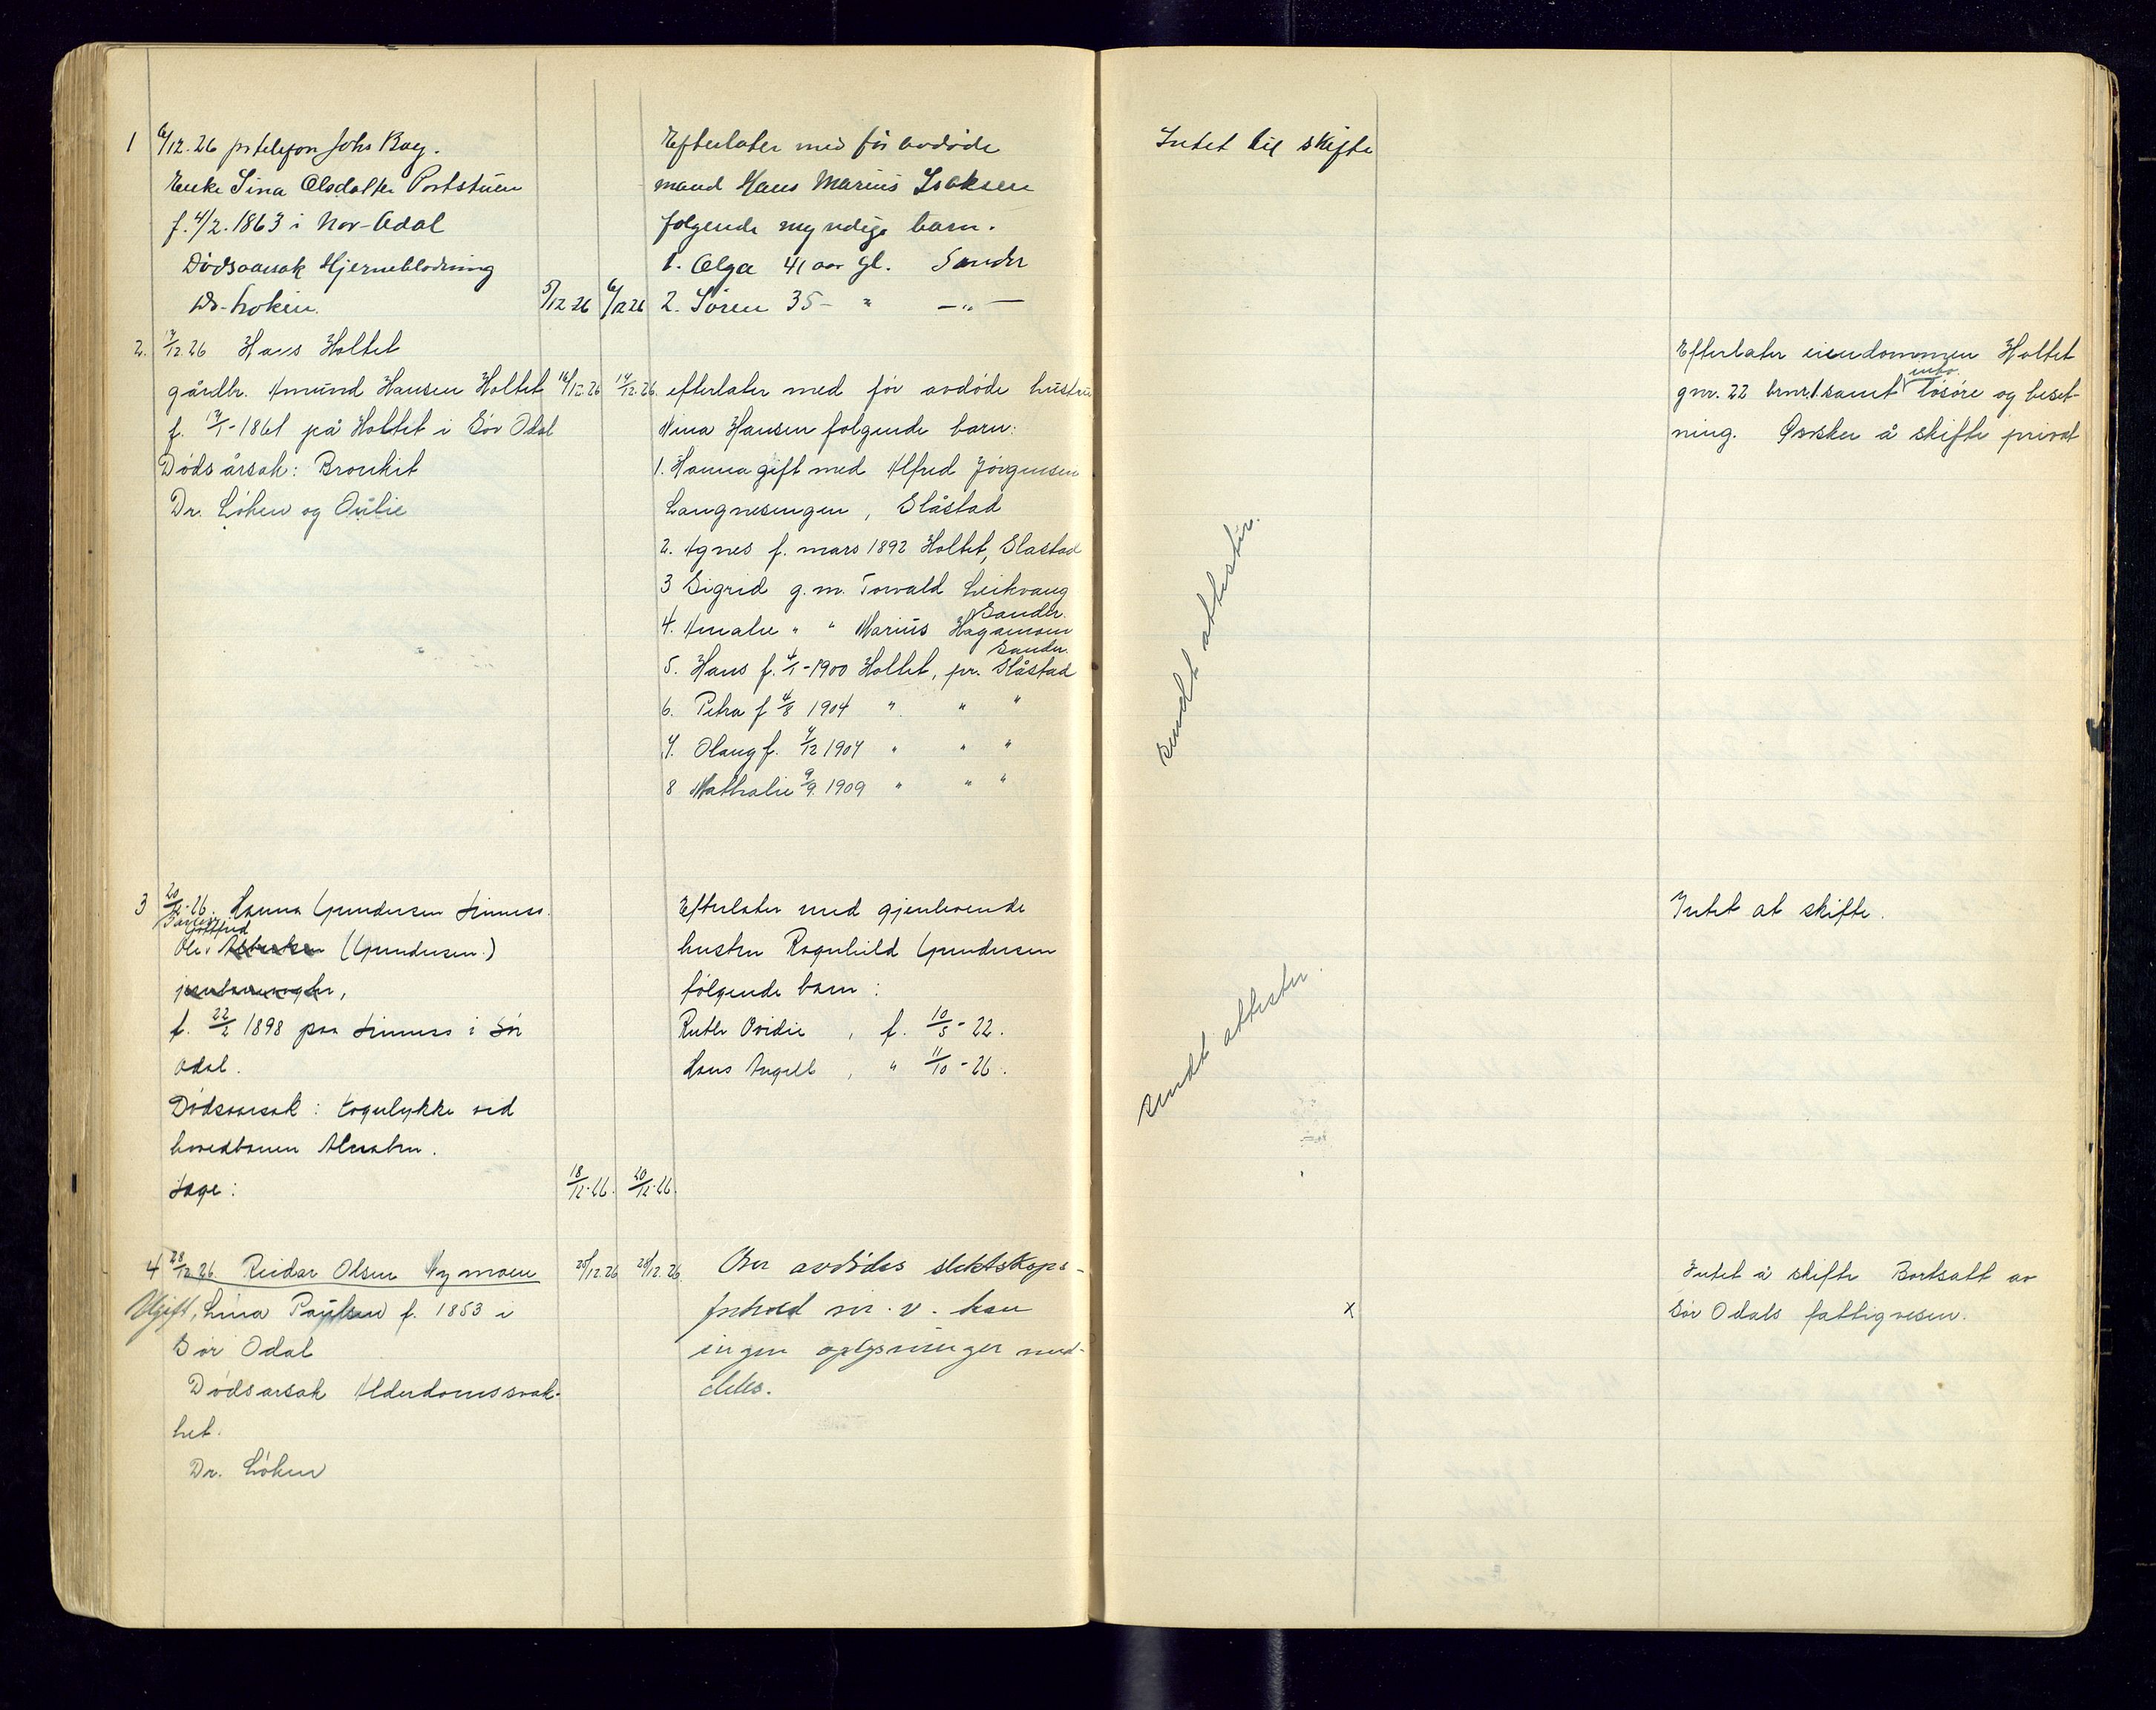 1 6/12.26 pr telefon Johs Bay.
Enke Sina Olsdatter Portstuen
f. 4/2. 1863 i Nor-Odal
Dödsaarsak Hjerneblödning
Dr.
5/12 26 6/12 26
Efterlater med för avdöde
mand Hans Marius Isaksen
følgende myndige barn.
1. Olga 41 aar gl. Sander
2. Sören 35 - " - " -
Intet til skifte
2. 17/12.26 Hans Holtet
gårdbr. Amund Hansen Holtet 16/12.26 17/12.26
f. 17/1-1861 på Holtet i Sör Odal
Dödsårsak: Bronkit
Dr. Löken og
efterlater med för avdöde hustru
Nina Hansen følgende barn:
1. Hanna gift med Alfred Jörgensen
Langnesengen, Slåstad
2. Agnes f. mars 1892 Holtet, Slåstad
3 Sigrid g.m. Torvald Leikvang
Sander.
4. Amalie " " Marius Hagamoen
Sander.
5. Hans f. 4/1-1900 Holtet, pr. Slåstad
6. Petra f 4/8 1904 " " "
7. Olaug f. 7/12 1907 " " "
8 Mathalie 9/9. 1909 " " "
sendt attester.
Efterlater eiendommen Holtet
gnr. 22 brnr.1 samt innbo. lösöre og beset-
ning. Ønsker å skifte privat
3 20/12-26. Hanna Gundersen Finnes.
Ole Gotfred (Gundersen)
f. 22/2 1898 paa Finnes i Sör
Odal.
Dödsaarsak: togulykke ved
hovedbanen Alnabru.
Læge: 18/12-26. 20/12-26.
Efterlater med gjenlevende
hustru Ragnhild Gundersen
følgende barn:
Ruth Ovidie, f. 10/5-22.
Hans Angell, " 11/10-26.
sendt attester.
Intet at skifte.
4 28/12 26. Reidar Olsen Nymoen 25/12.26 28/12.26
Ugift, Lina Paulsen f. 1853 i
Sör Odal
Dödsarsak Alderdomssvak-
het.
Dr. Löken
Om avdödes slektskaps-
forhold m. v. kan
ingen oplysninger med-
deles.
x
Intet å skifte Bortsatt av
Sör Odals fattigvesen.